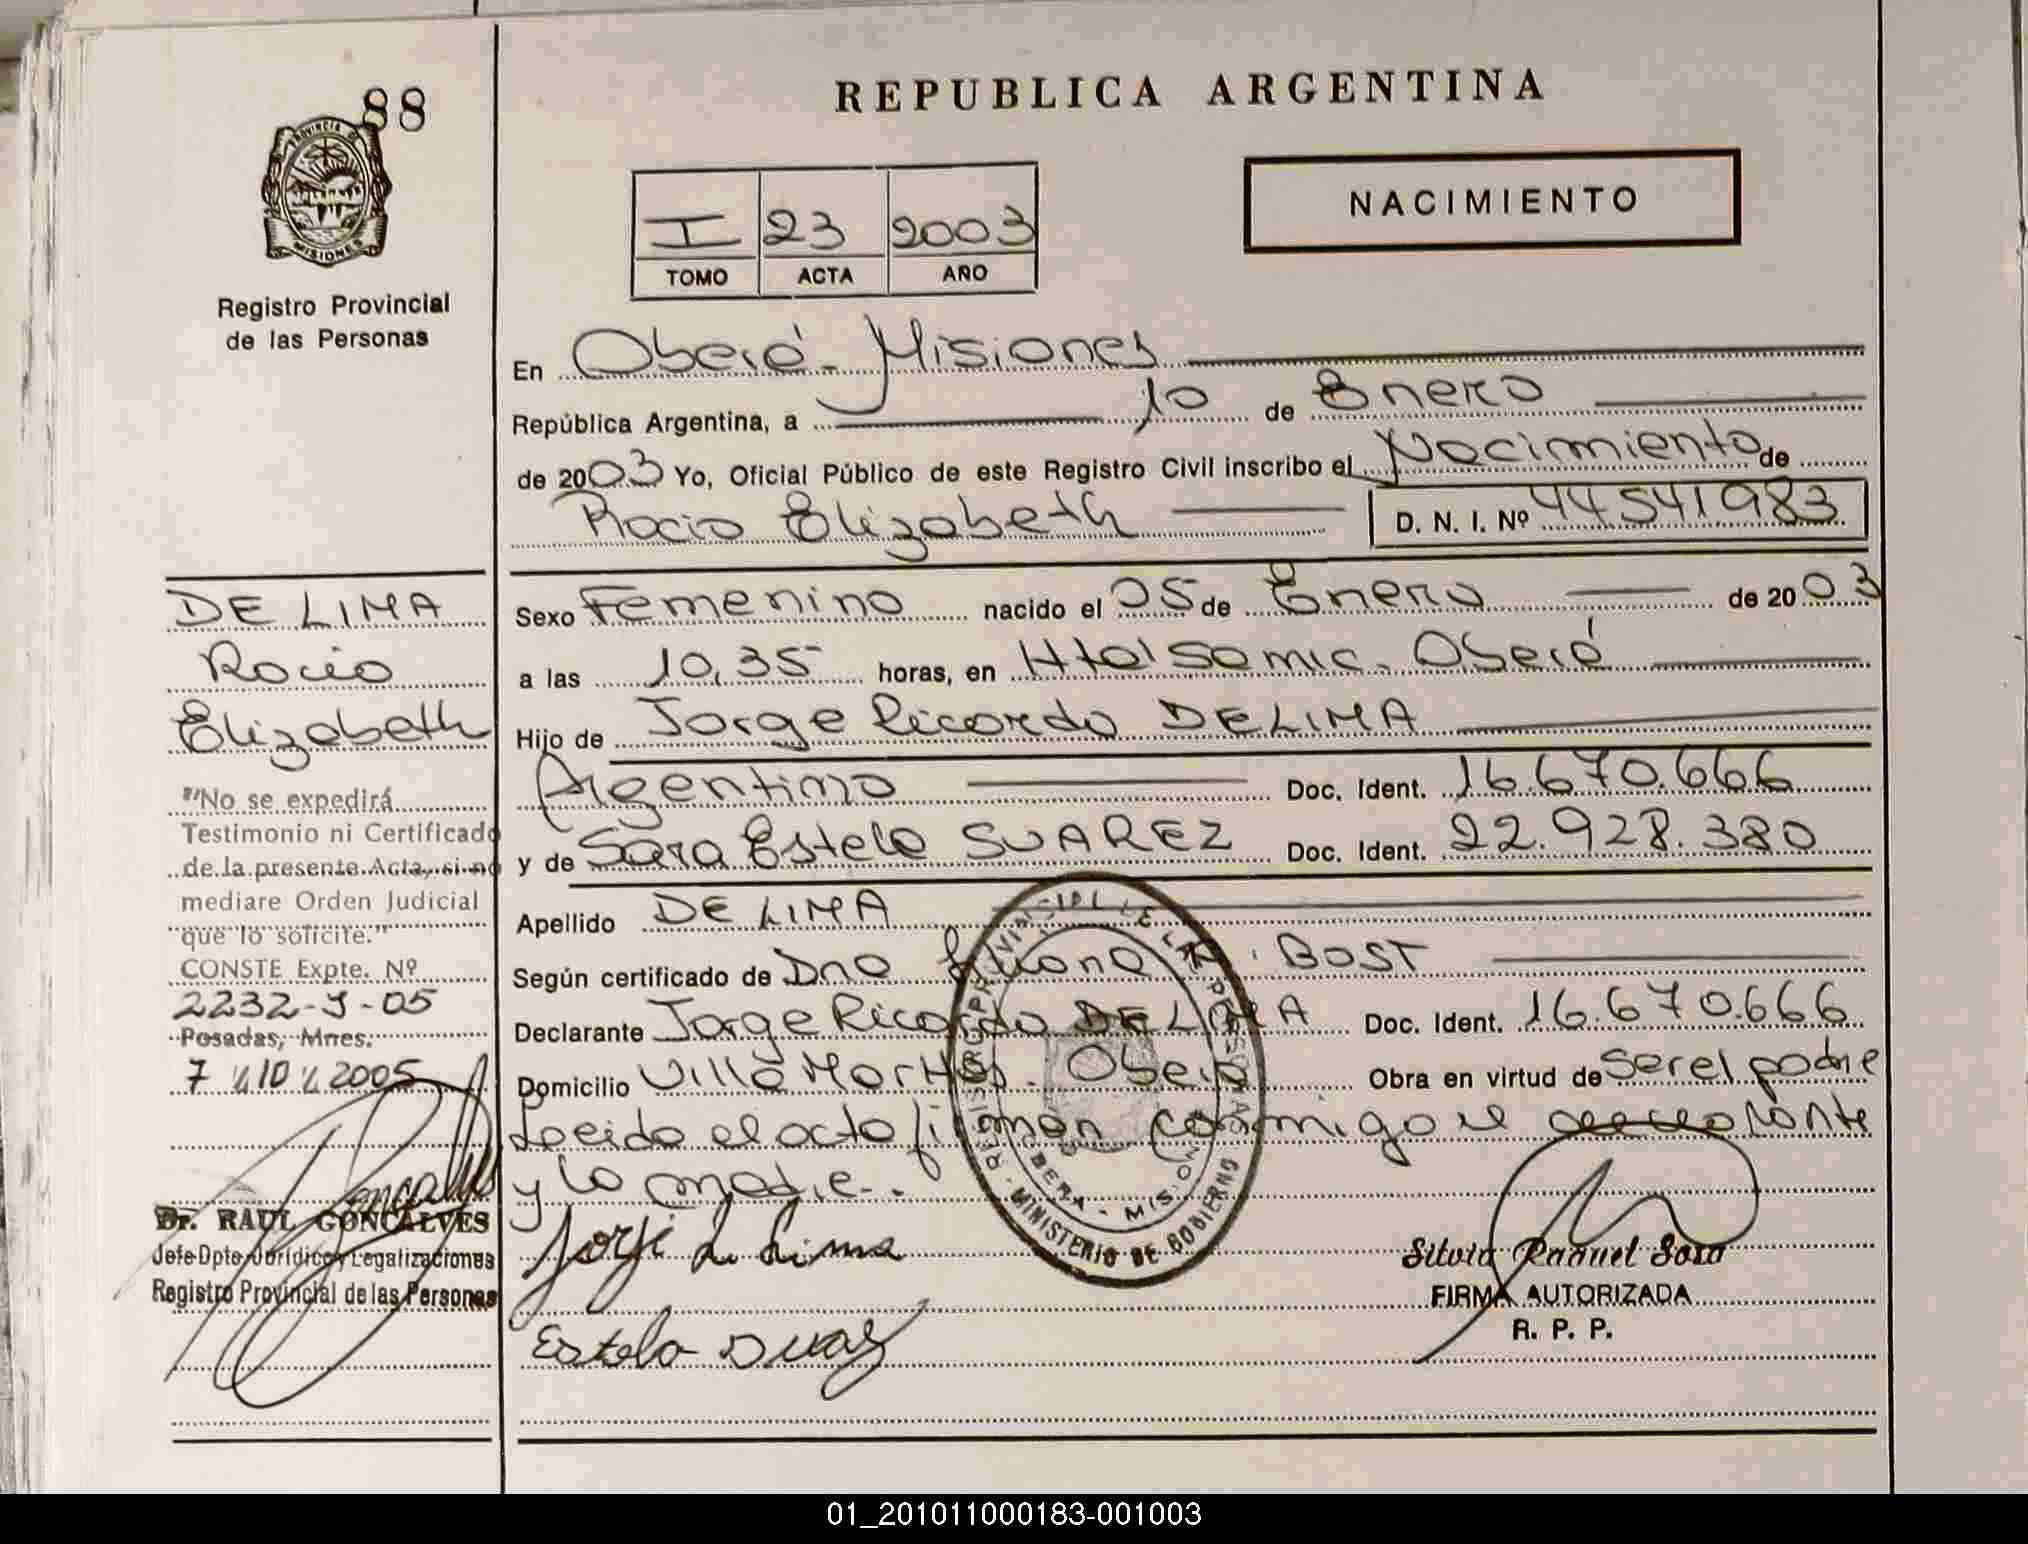 88
PROVINCIA DE
MISIONES
Registro Provincial
de las Personas
REPUBLICA ARGENTINA
I 23 2003
TOMO ACTA AÑO
NACIMIENTO
En Oberá - Misiones
República Argentina, a 10 de Enero
de 2003 Yo, Oficial Público de este Registro Civil inscribo el Nacimiento de
Rocio Elizabeth D. N. I. Nº 44541983
Sexo Femenino nacido el 05 de Enero de 2003
a las 10,35 horas, en Htal Samic. Oberá
Hijo de Jorge Ricardo DE LIMA
Argentino Doc. Ident. 16.670.666
y de Sara Estela SUAREZ Doc. Ident. 22.928.380
Apellido DE LIMA
Según certificado de Dra BOST
Declarante Jorge Ricardo DE LIMA Doc. Ident. 16.670.666
Domicilio Villa Oberá Obra en virtud de ser el padre
Leida el acta firman conmigo el
y la madre.
Jorge de Lima
Silvia Raquel Sosa
FIRMA AUTORIZADA
R. P. P.
Estela
DE LIMA
Rocio
Elizabeth
"No se expedirá
Testimonio ni Certificado
de la presente Acta, si no
mediare Orden Judicial
que lo solicite."
CONSTE Expte. Nº
2232-J-05
Posadas, Mnes.
7 10 2005
Dr. RAUL GONCALVES
Jefe Dpto Jurídico y Legalizaciones
Registro Provincial de las Personas
OBERA - MISIONES
MINISTERIO DE GOBIERNO
01_201011000183-001003